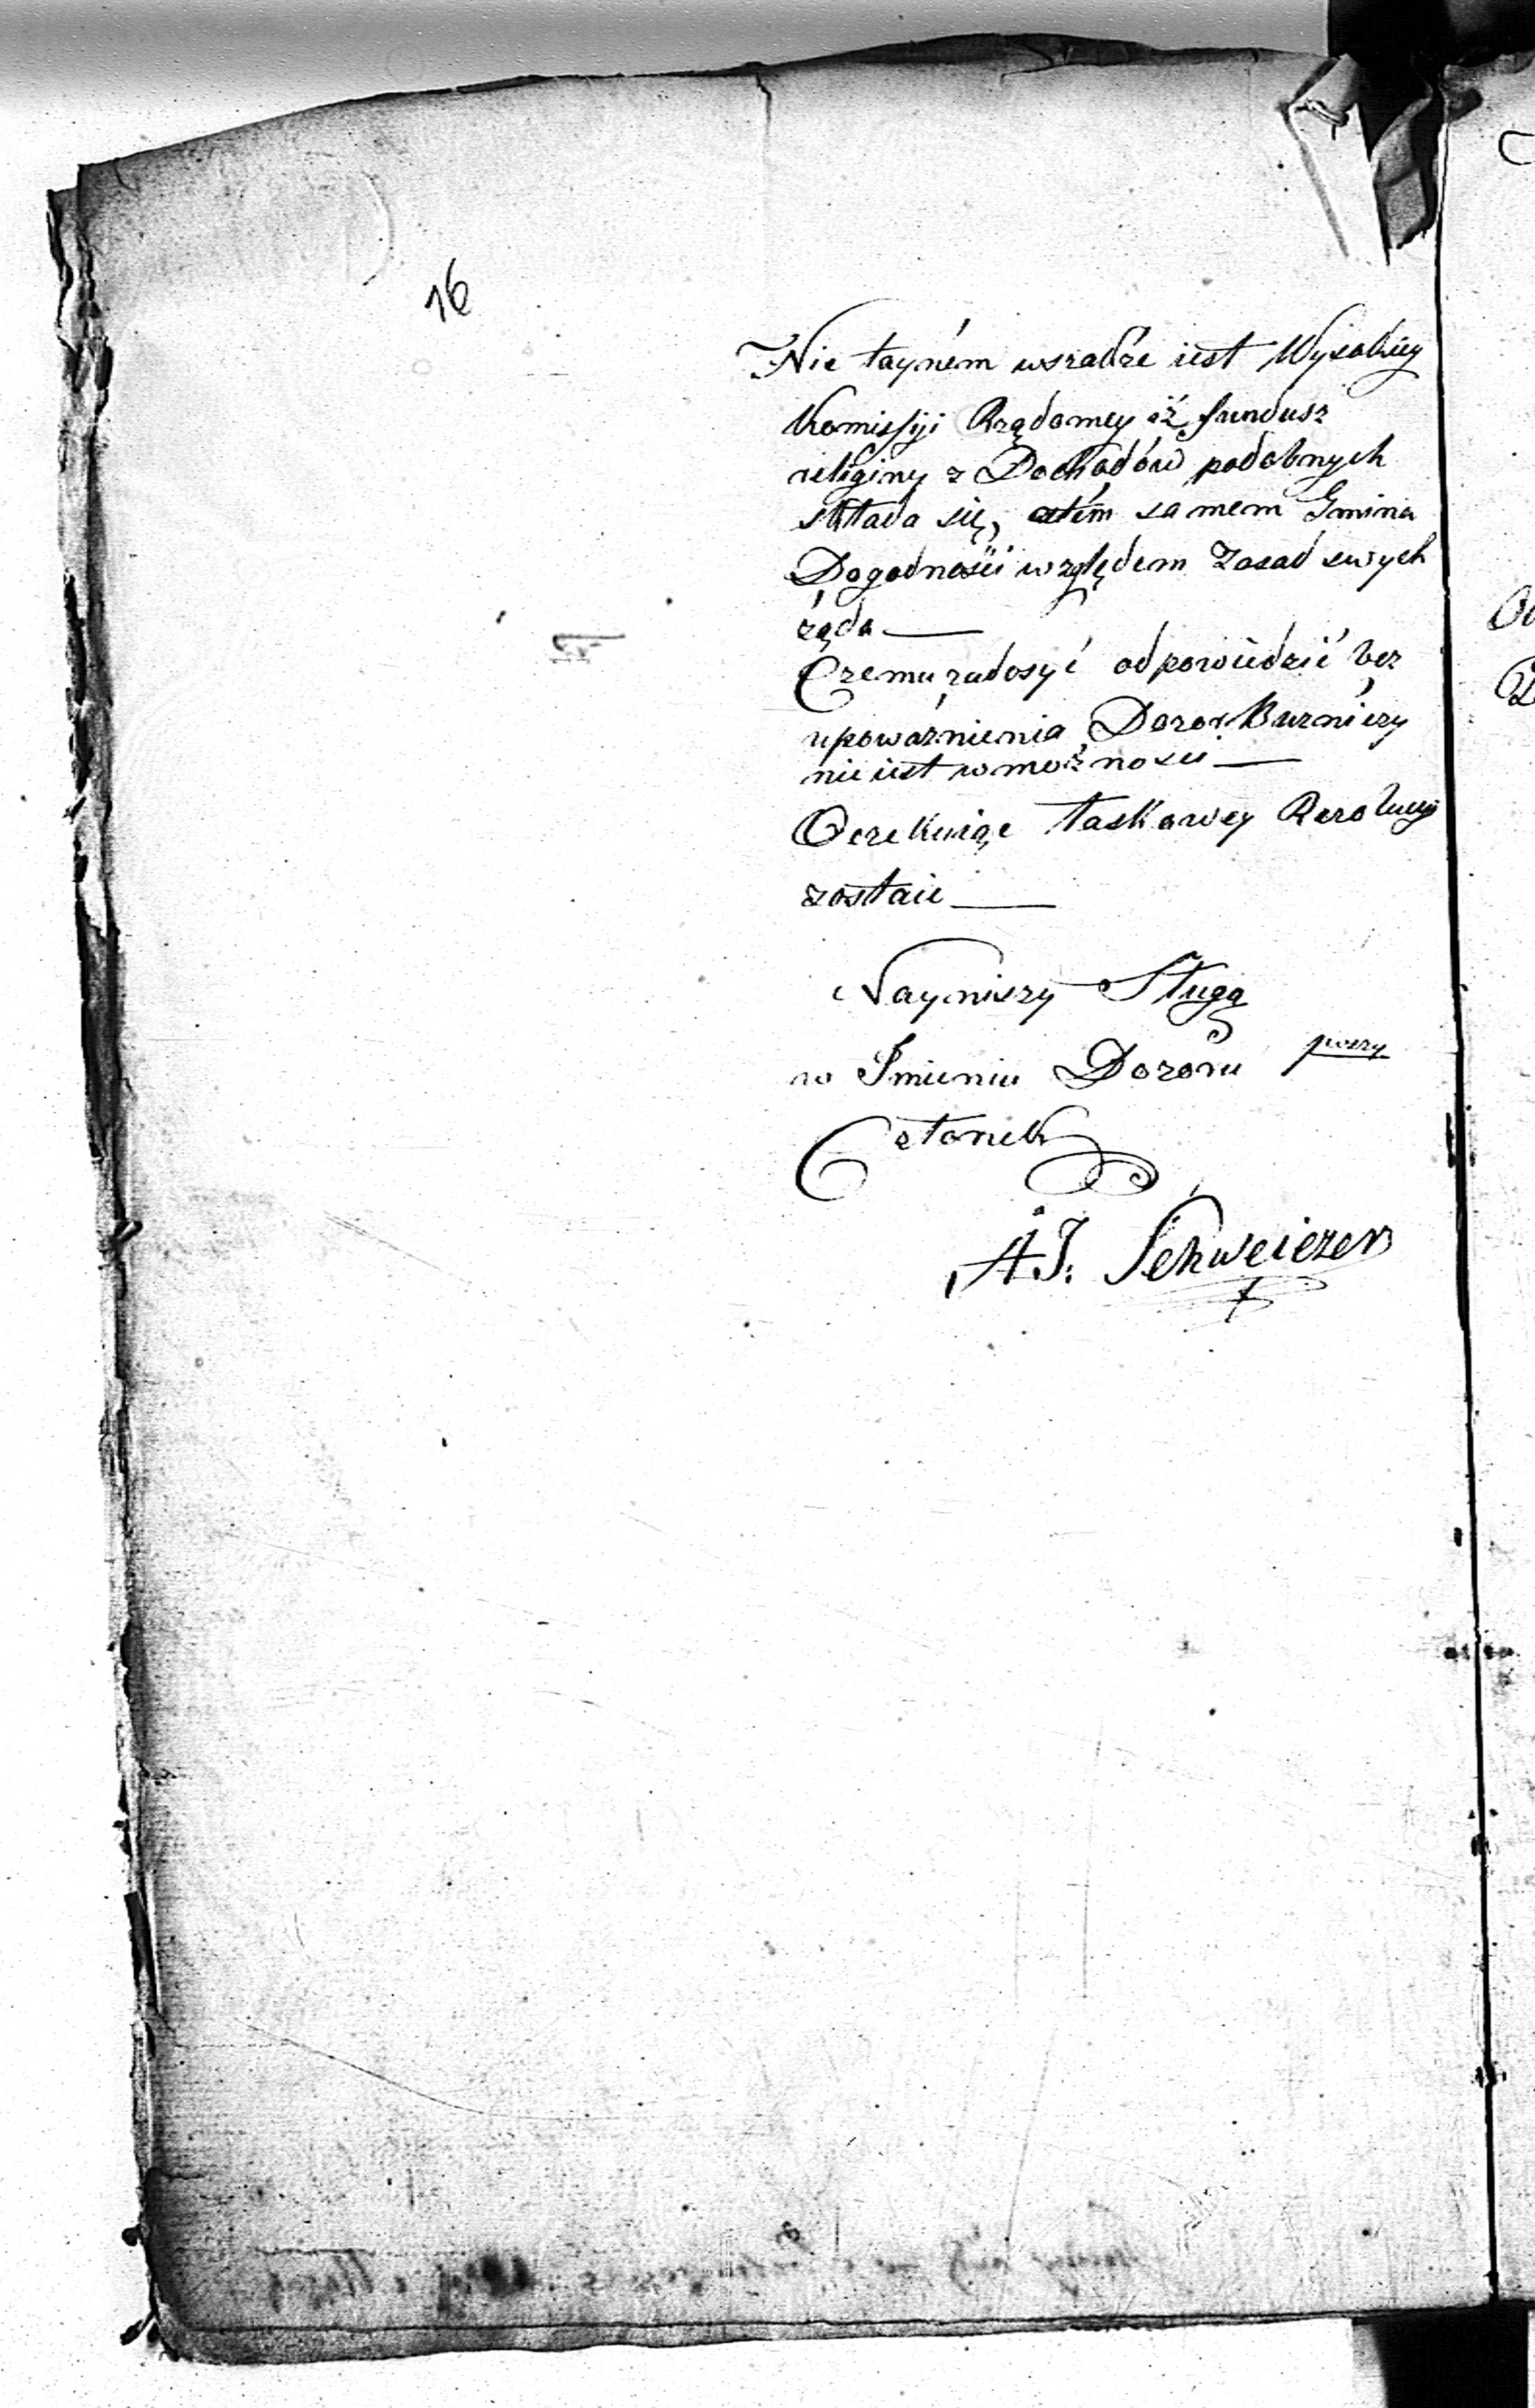 16
Nie tayném wszadze iest Wysokiey
Komissyi Rządowey iż fundusz
religiny z Dochodów podobnych
składa się, atém samem Gmina
Dogodności względem Zasad swych
żąda —
Czemu zadosyć odpowiedzić bez
upoważnienia Dozor Burniczy
nie iest w możności —
Oczekuiąc łaskawey Rezolucyi
zostaie —
Nayniszy Sługa
w Jmieniu Dozoru
Członek
A J. Schweiczer